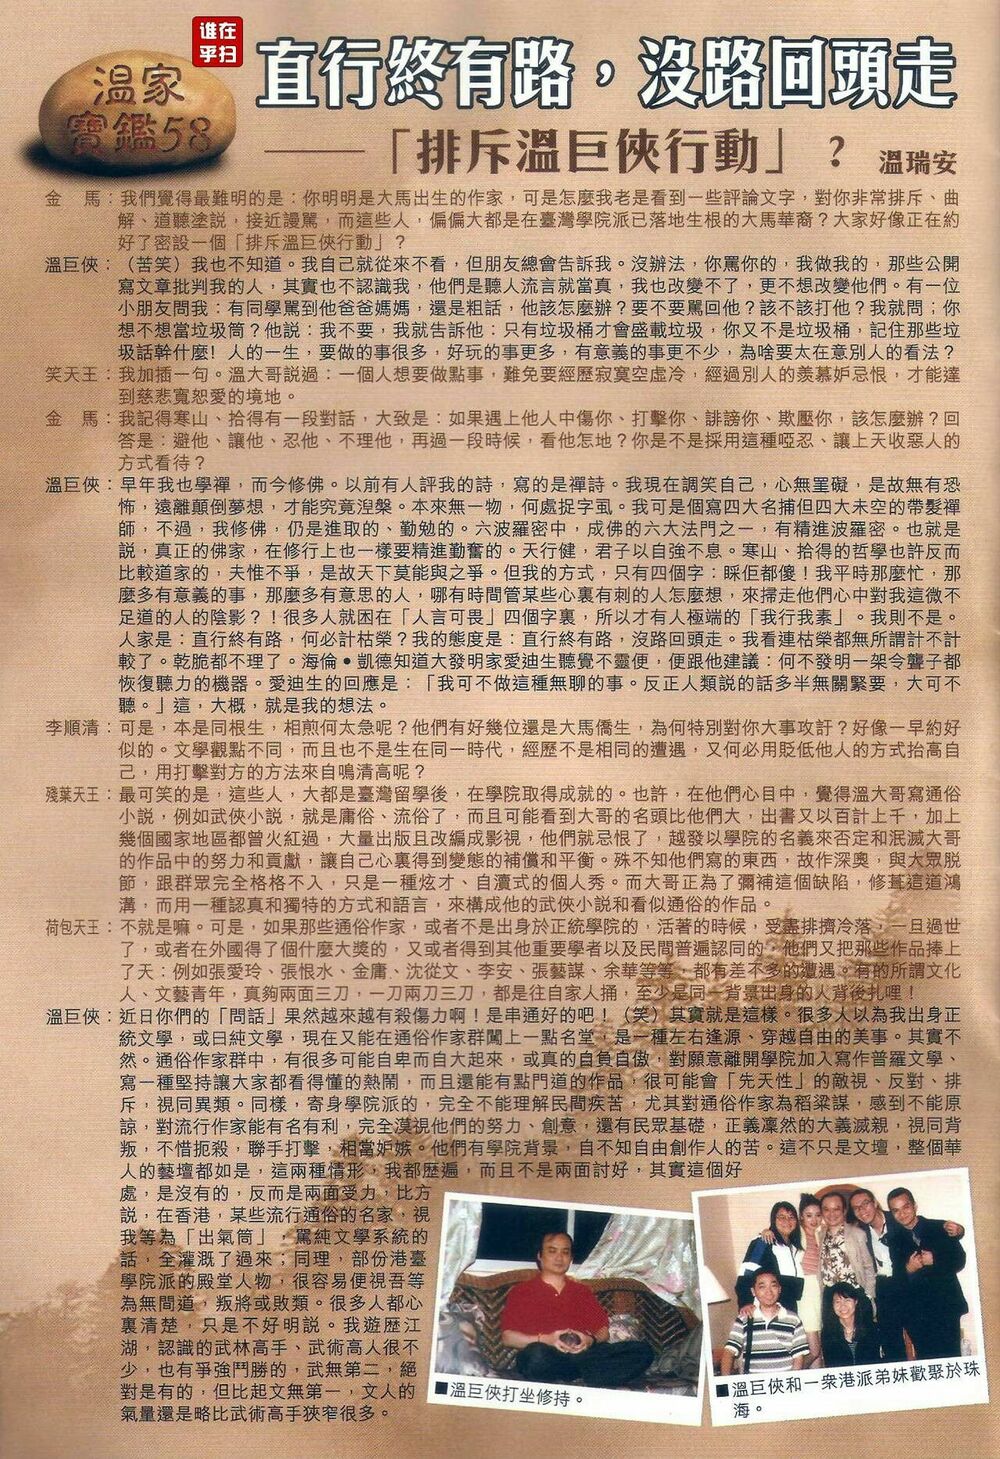 谁在
乎扫
溫家
寶鑑58
直行終有路，沒路回頭走
——「排斥溫巨俠行動」？ 溫瑞安
金　馬：我們覺得最難明的是：你明明是大馬出生的作家，可是怎麼我老是看到一些評論文字，對你非常排斥、曲
解、道聽塗說，接近謾罵，而這些人，偏偏大都是在臺灣學院派已落地生根的大馬華裔？大家好像正在約
好了密設一個「排斥溫巨俠行動」？
溫巨俠：（苦笑）我也不知道。我自己就從來不看，但朋友總會告訴我。沒辦法，你罵你的，我做我的，那些公開
寫文章批判我的人，其實也不認識我，他們是聽人流言就當真，我也改變不了，更不想改變他們。有一位
小朋友問我：有同學罵到他爸爸媽媽，還是粗話，他該怎麼辦？要不要罵回他？該不該打他？我就問；你
想不想當垃圾筒？他說：我不要，我就告訴他：只有垃圾桶才會盛載垃圾，你又不是垃圾桶，記住那些垃
圾話幹什麼！人的一生，要做的事很多，好玩的事更多，有意義的事更不少，為啥要太在意別人的看法？
笑天王：我加插一句。溫大哥說過：一個人想要做點事，難免要經歷寂寞空虛冷，經過別人的羨慕妒忌恨，才能達
到慈悲寬恕愛的境地。
金　馬：我記得寒山、拾得有一段對話，大致是：如果遇上他人中傷你、打擊你、誹謗你、欺壓你，該怎麼辦？回
答是：避他、讓他、忍他、不理他，再過一段時候，看他怎地？你是不是採用這種啞忍、讓上天收惡人的
方式看待？
溫巨俠：早年我也學禪，而今修佛。以前有人評我的詩，寫的是禪詩。我現在調笑自己，心無罣礙，是故無有恐
怖，遠離顛倒夢想，才能究竟涅槃。本來無一物，何處捉字虱。我可是個寫四大名捕但四大未空的帶髮禪
師，不過，我修佛，仍是進取的、勤勉的。六波羅密中，成佛的六大法門之一，有精進波羅密。也就是
說，真正的佛家，在修行上也一樣要精進勤奮的。天行健，君子以自強不息。寒山、拾得的哲學也許反而
比較道家的，夫惟不爭，是故天下莫能與之爭。但我的方式，只有四個字：睬佢都傻！我平時那麼忙，那
麼多有意義的事，那麼多有意思的人，哪有時間管某些心裏有刺的人怎麼想，來掃走他們心中對我這微不
足道的人的陰影？！很多人就困在「人言可畏」四個字裏，所以才有人極端的「我行我素」。我則不是。
人家是：直行終有路，何必計枯榮？我的態度是：直行終有路，沒路回頭走。我看連枯榮都無所謂計不計
較了。乾脆都不理了。海倫•凱德知道大發明家愛迪生聽覺不靈便，便跟他建議：何不發明一架令聾子都
恢復聽力的機器。愛迪生的回應是：「我可不做這種無聊的事。反正人類說的話多半無關緊要，大可不
聽。」這，大概，就是我的想法。
李順清：可是，本是同根生，相煎何太急呢？他們有好幾位還是大馬僑生，為何特別對你大事攻訐？好像一早約好
似的。文學觀點不同，而且也不是生在同一時代，經歷不是相同的遭遇，又何必用貶低他人的方式抬高自
己，用打擊對方的方法來自鳴清高呢？
殘葉天王：最可笑的是，這些人，大都是臺灣留學後，在學院取得成就的。也許，在他們心目中，覺得溫大哥寫通俗
小說，例如武俠小說，就是庸俗、流俗了，而且可能看到大哥的名頭比他們大，出書又以百計上千，加上
幾個國家地區都曾火紅過，大量出版且改編成影視，他們就忌恨了，越發以學院的名義來否定和泯滅大哥
的作品中的努力和貢獻，讓自己心裏得到變態的補償和平衡。殊不知他們寫的東西，故作深奧，與大眾脫
節，跟群眾完全格格不入，只是一種炫才、自瀆式的個人秀。而大哥正為了彌補這個缺陷，修葺這道鴻
溝，而用一種認真和獨特的方式和語言，來構成他的武俠小說和看似通俗的作品。
荷包天王：不就是嘛。可是，如果那些通俗作家，或者不是出身於正統學院的，活著的時候，受盡排擠冷落，一旦過世
了，或者在外國得了個什麼大獎的，又或者得到其他重要學者以及民間普遍認同的，他們又把那些作品捧上
了天：例如張愛玲、張恨水、金庸、沈從文、李安、張藝謀、余華等等，都有差不多的遭遇。有的所謂文化
人、文藝青年，真夠兩面三刀，一刀兩刀三刀，都是往自家人捅，至少是同一背景出身的人背後扎哩！
溫巨俠：近日你們的「問話」果然越來越有殺傷力啊！是串通好的吧！（笑）其實就是這樣。很多人以為我出身正
統文學，或曰純文學，現在又能在通俗作家群闖上一點名堂，是一種左右逢源、穿越自由的美事。其實不
然。通俗作家群中，有很多可能自卑而自大起來，或真的自負自傲，對願意離開學院加入寫作普羅文學、
寫一種堅持讓大家都看得懂的熱鬧，而且還能有點門道的作品，很可能會「先天性」的敵視、反對、排
斥，視同異類。同樣，寄身學院派的，完全不能理解民間疾苦，尤其對通俗作家為稻粱謀，感到不能原
諒，對流行作家能有名有利，完全漠視他們的努力、創意，還有民眾基礎，正義凜然的大義滅親，視同背
叛，不惜扼殺，聯手打擊，相當妒嫉。他們有學院背景，自不知自由創作人的苦。這不只是文壇，整個華
人的藝壇都如是，這兩種情形，我都歷遍，而且不是兩面討好，其實這個好
處，是沒有的，反而是兩面受力，比方
說，在香港，某些流行通俗的名家，視
我等為「出氣筒」，罵純文學系統的
話，全灌溉了過來；同理，部份港臺
學院派的殿堂人物，很容易便視吾等
為無間道，叛將或敗類。很多人都心
裏清楚，只是不好明說。我遊歷江
湖，認識的武林高手、武術高人很不
少，也有爭強鬥勝的，武無第二，絕
對是有的，但比起文無第一，文人的
氣量還是略比武術高手狹窄很多。
■溫巨俠打坐修持。
■溫巨俠和一衆港派弟妹歡聚於珠
海。